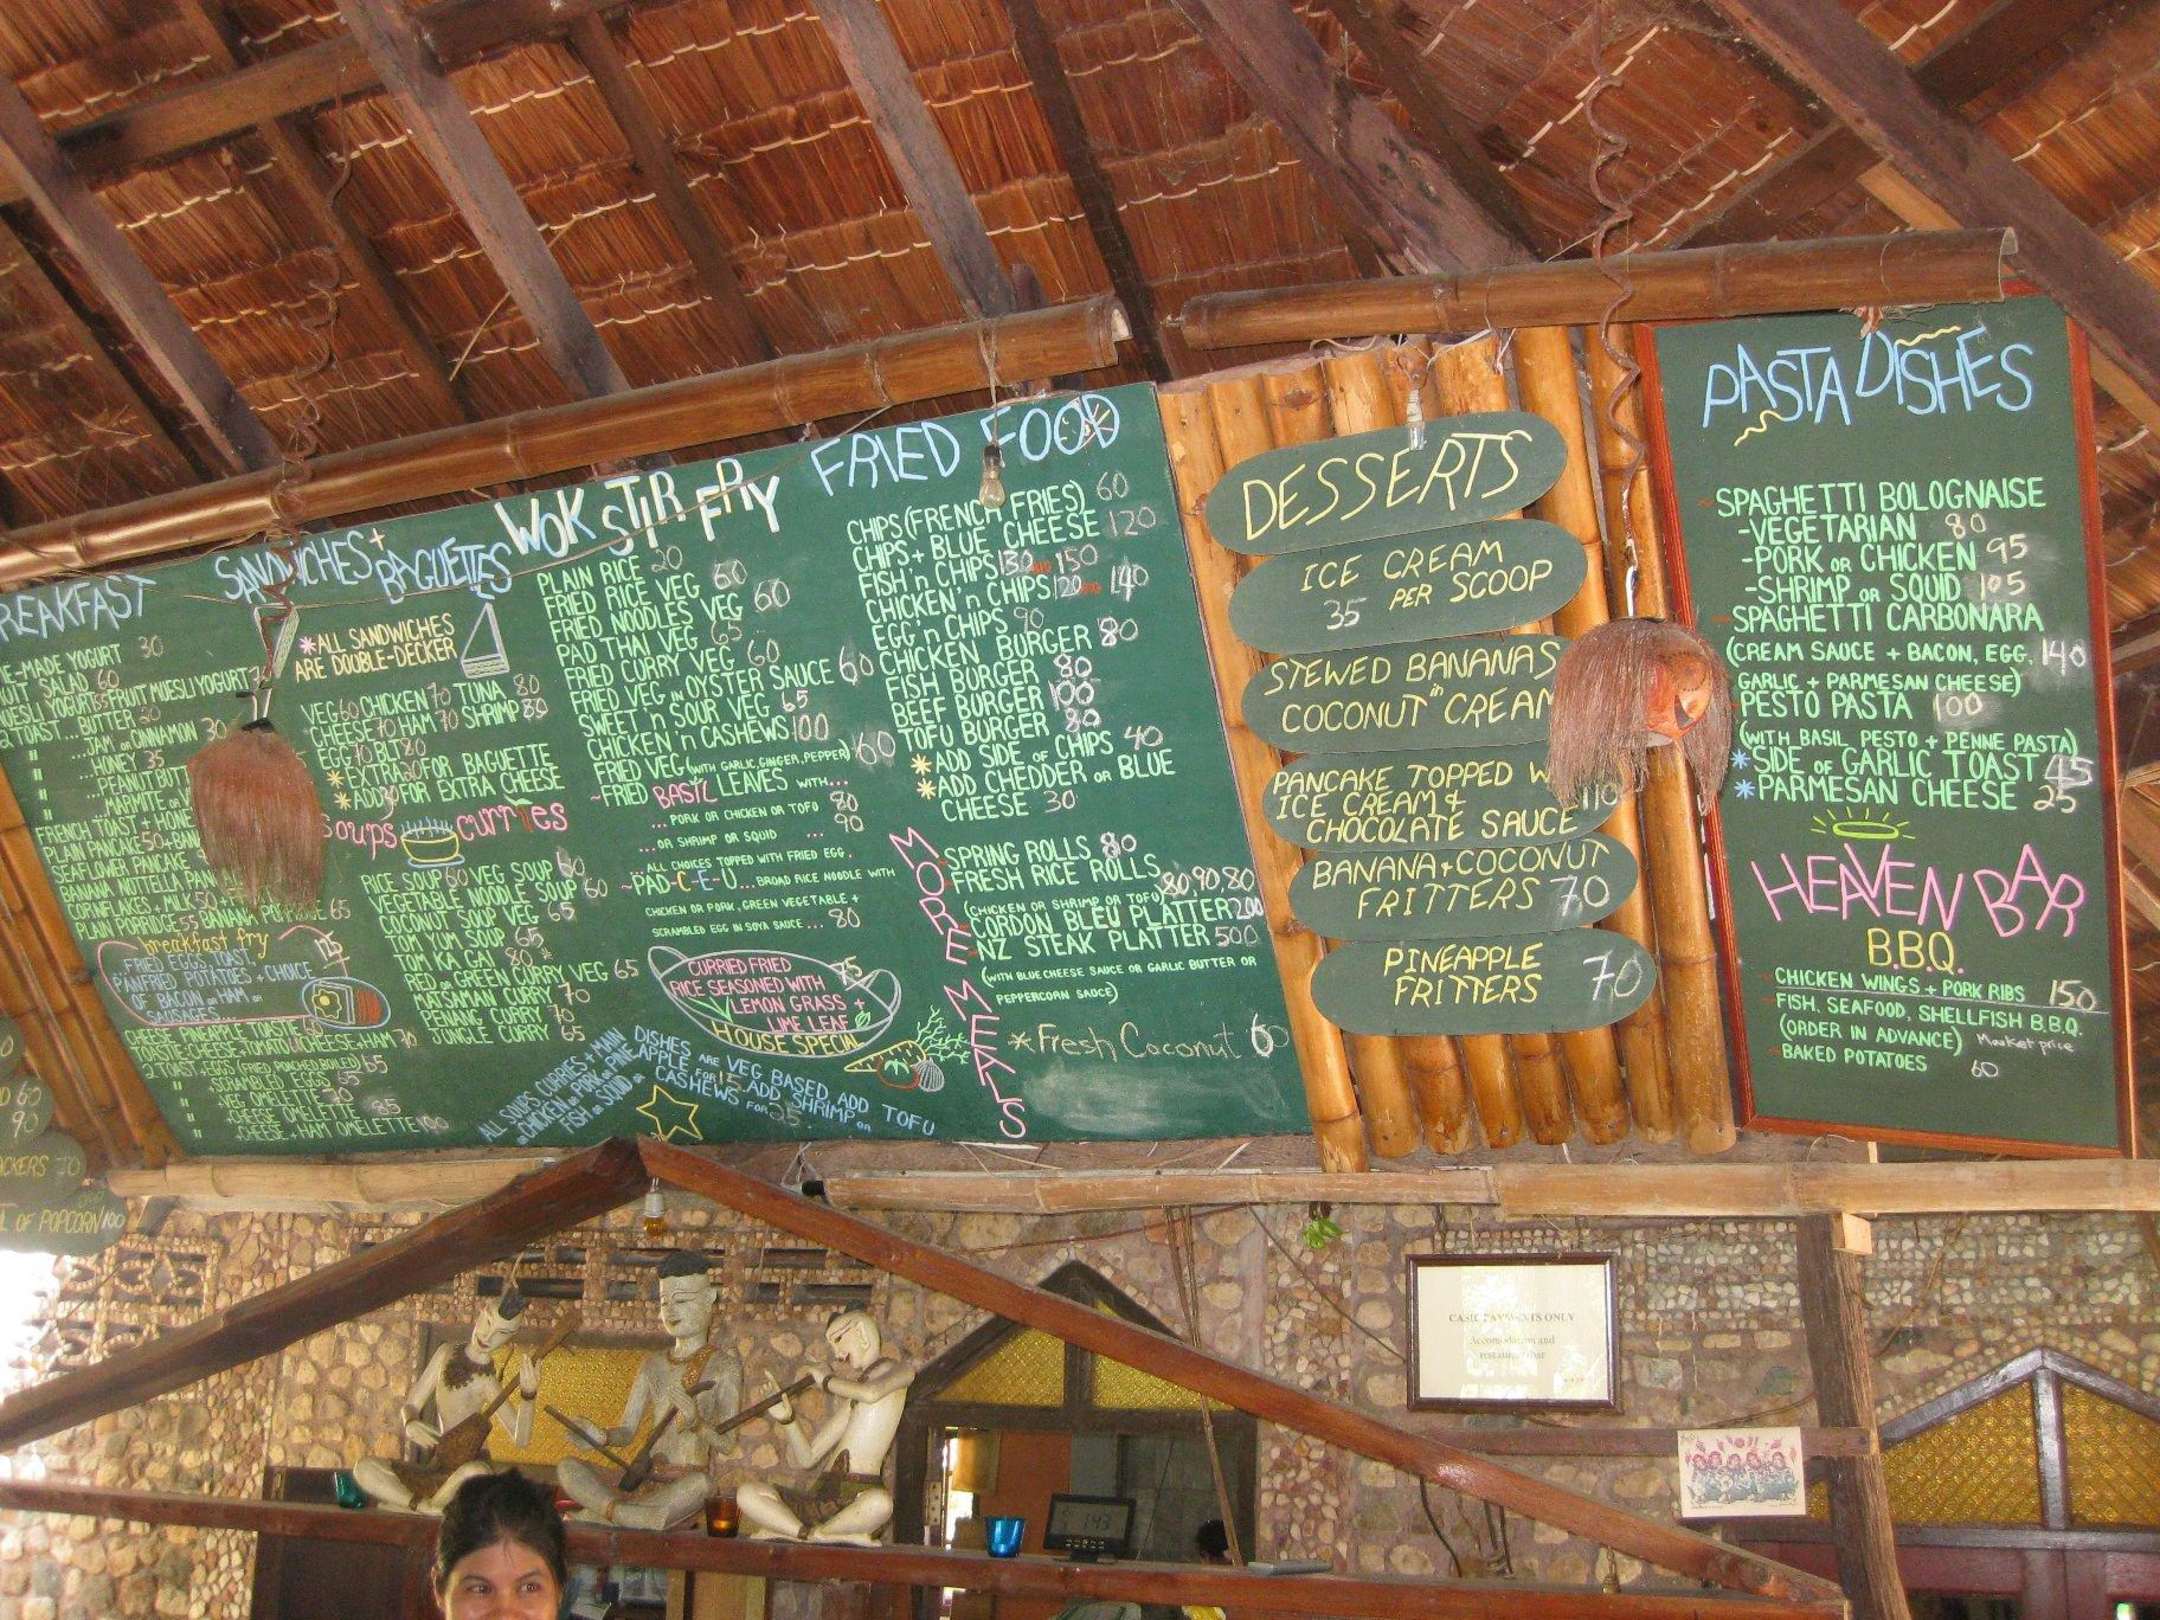 BREAKFAST
YOGURT 30
SALAD 60
MUESLI YOGURT 65 FRUIT MUESLI YOGURT
2 TOAST... BUTTER
...JAM or CINNAMON 30
" ...HONEY 35
" ...PEANUT
" ...MARMITE or
FRENCH TOAST + HONE
PLAIN PANCAKE 50 + BAN
SEAFLOWER PANCAKE
BANANA NOTTELLA PAN
CORNFLAKES + MILK 50 +
PLAIN PORRIDGE 55 BANANA PORRIDGE 65
breakfast fry 125
FRIED EGGS, TOAST,
PANFRIED POTATOES + CHOICE
OF BACON or HAM or
SAUSAGES...
CHEESE PINEAPPLE TOASTIE 60
TOASTIE-CHEESE+TOMATO CHEESE+HAM 70
2 TOAST + EGGS (FRIED, POACHED, BOILED) 65
" +SCRAMBLED EGGS 65
" +VEG OMELETTE 70
" +CHEESE OMELETTE 85
" +CHEESE+HAM OMELETTE 100
SANDWICHES +
BAGUETTES
*ALL SANDWICHES
ARE DOUBLE-DECKER
VEG 60 CHICKEN 70 TUNA 80
CHEESE 70 HAM 70 SHRIMP 80
EGG 70 BLT 80
*EXTRA 30 FOR BAGUETTE
*ADD 30 FOR EXTRA CHEESE
soups curries
RICE SOUP 60 VEG SOUP 60
VEGETABLE NOODLE SOUP 60
COCONUT SOUP VEG 65
TOM YUM SOUP 65
TOM KA GAI 80 *
RED or GREEN CURRY VEG 65
MATSAMAN CURRY 70
PENANG CURRY 70
JUNGLE CURRY 65
ALL SOUPS, CURRIES + MAIN
DISHES ARE VEG BASED, ADD TOFU
or CHICKEN or PORK or PINE-
APPLE FOR 15. ADD SHRIMP or
FISH or SQUID or
CASHEWS FOR 25
WOK STIR FRY
PLAIN RICE 20
FRIED RICE VEG 60
FRIED NOODLES VEG 60
PAD THAI VEG 65
FRIED CURRY VEG 60
FRIED VEG IN OYSTER SAUCE 60
SWEET 'n SOUR VEG 65
CHICKEN 'n CASHEWS 100
FRIED VEG (WITH GARLIC, GINGER, PEPPER) 60
~FRIED BASIL LEAVES WITH...
...PORK OR CHICKEN OR TOFU 80
...OR SHRIMP OR SQUID ... 90
...ALL CHOICES TOPPED WITH FRIED EGG.
~PAD-C-E-U... BROAD RICE NOODLE WITH
CHICKEN OR PORK, GREEN VEGETABLE +
SCRAMBLED EGG IN SOYA SAUCE ... 80
CURRIED FRIED 75
RICE SEASONED WITH
LEMON GRASS +
LIME LEAF
HOUSE SPECIAL
FRIED FOOD
CHIPS (FRENCH FRIES) 60
CHIPS + BLUE CHEESE 120
FISH 'n CHIPS 130 AND 150
CHICKEN 'n CHIPS 120 AND 140
EGG 'n CHIPS 90
CHICKEN BURGER 80
FISH BURGER 80
BEEF BURGER 100
TOFU BURGER 80
*ADD SIDE OF CHIPS 40
*ADD CHEDDER OR BLUE
CHEESE 30
MORE MEALS
-SPRING ROLLS 80
-FRESH RICE ROLLS 80,90,80
(CHICKEN OR SHRIMP OR TOFU)
-CORDON BLEU PLATTER 200
-NZ STEAK PLATTER 500
(WITH BLUE CHEESE SAUCE OR GARLIC BUTTER OR
PEPPERCORN SAUCE)
*Fresh Coconut 60
DESSERTS
ICE CREAM
35 PER SCOOP
STEWED BANANAS
in
COCONUT CREAM
PANCAKE TOPPED W
ICE CREAM + 110
CHOCOLATE SAUCE
BANANA + COCONUT
FRITTERS 70
PINEAPPLE
FRITTERS 70
PASTA DISHES
- SPAGHETTI BOLOGNAISE
-VEGETARIAN 80
-PORK OR CHICKEN 95
-SHRIMP OR SQUID 105
- SPAGHETTI CARBONARA
(CREAM SAUCE + BACON, EGG, 140
GARLIC + PARMESAN CHEESE)
- PESTO PASTA 100
(WITH BASIL PESTO + PENNE PASTA)
*SIDE OF GARLIC TOAST 45
*PARMESAN CHEESE 25
HEAVEN BAR
B.B.Q.
- CHICKEN WINGS + PORK RIBS 150
- FISH, SEAFOOD, SHELLFISH B.B.Q.
(ORDER IN ADVANCE) Market price
- BAKED POTATOES 60
60
90
ACKERS 70
OF POPCORN 100
CASH PAYMENTS ONLY
Accomodation and